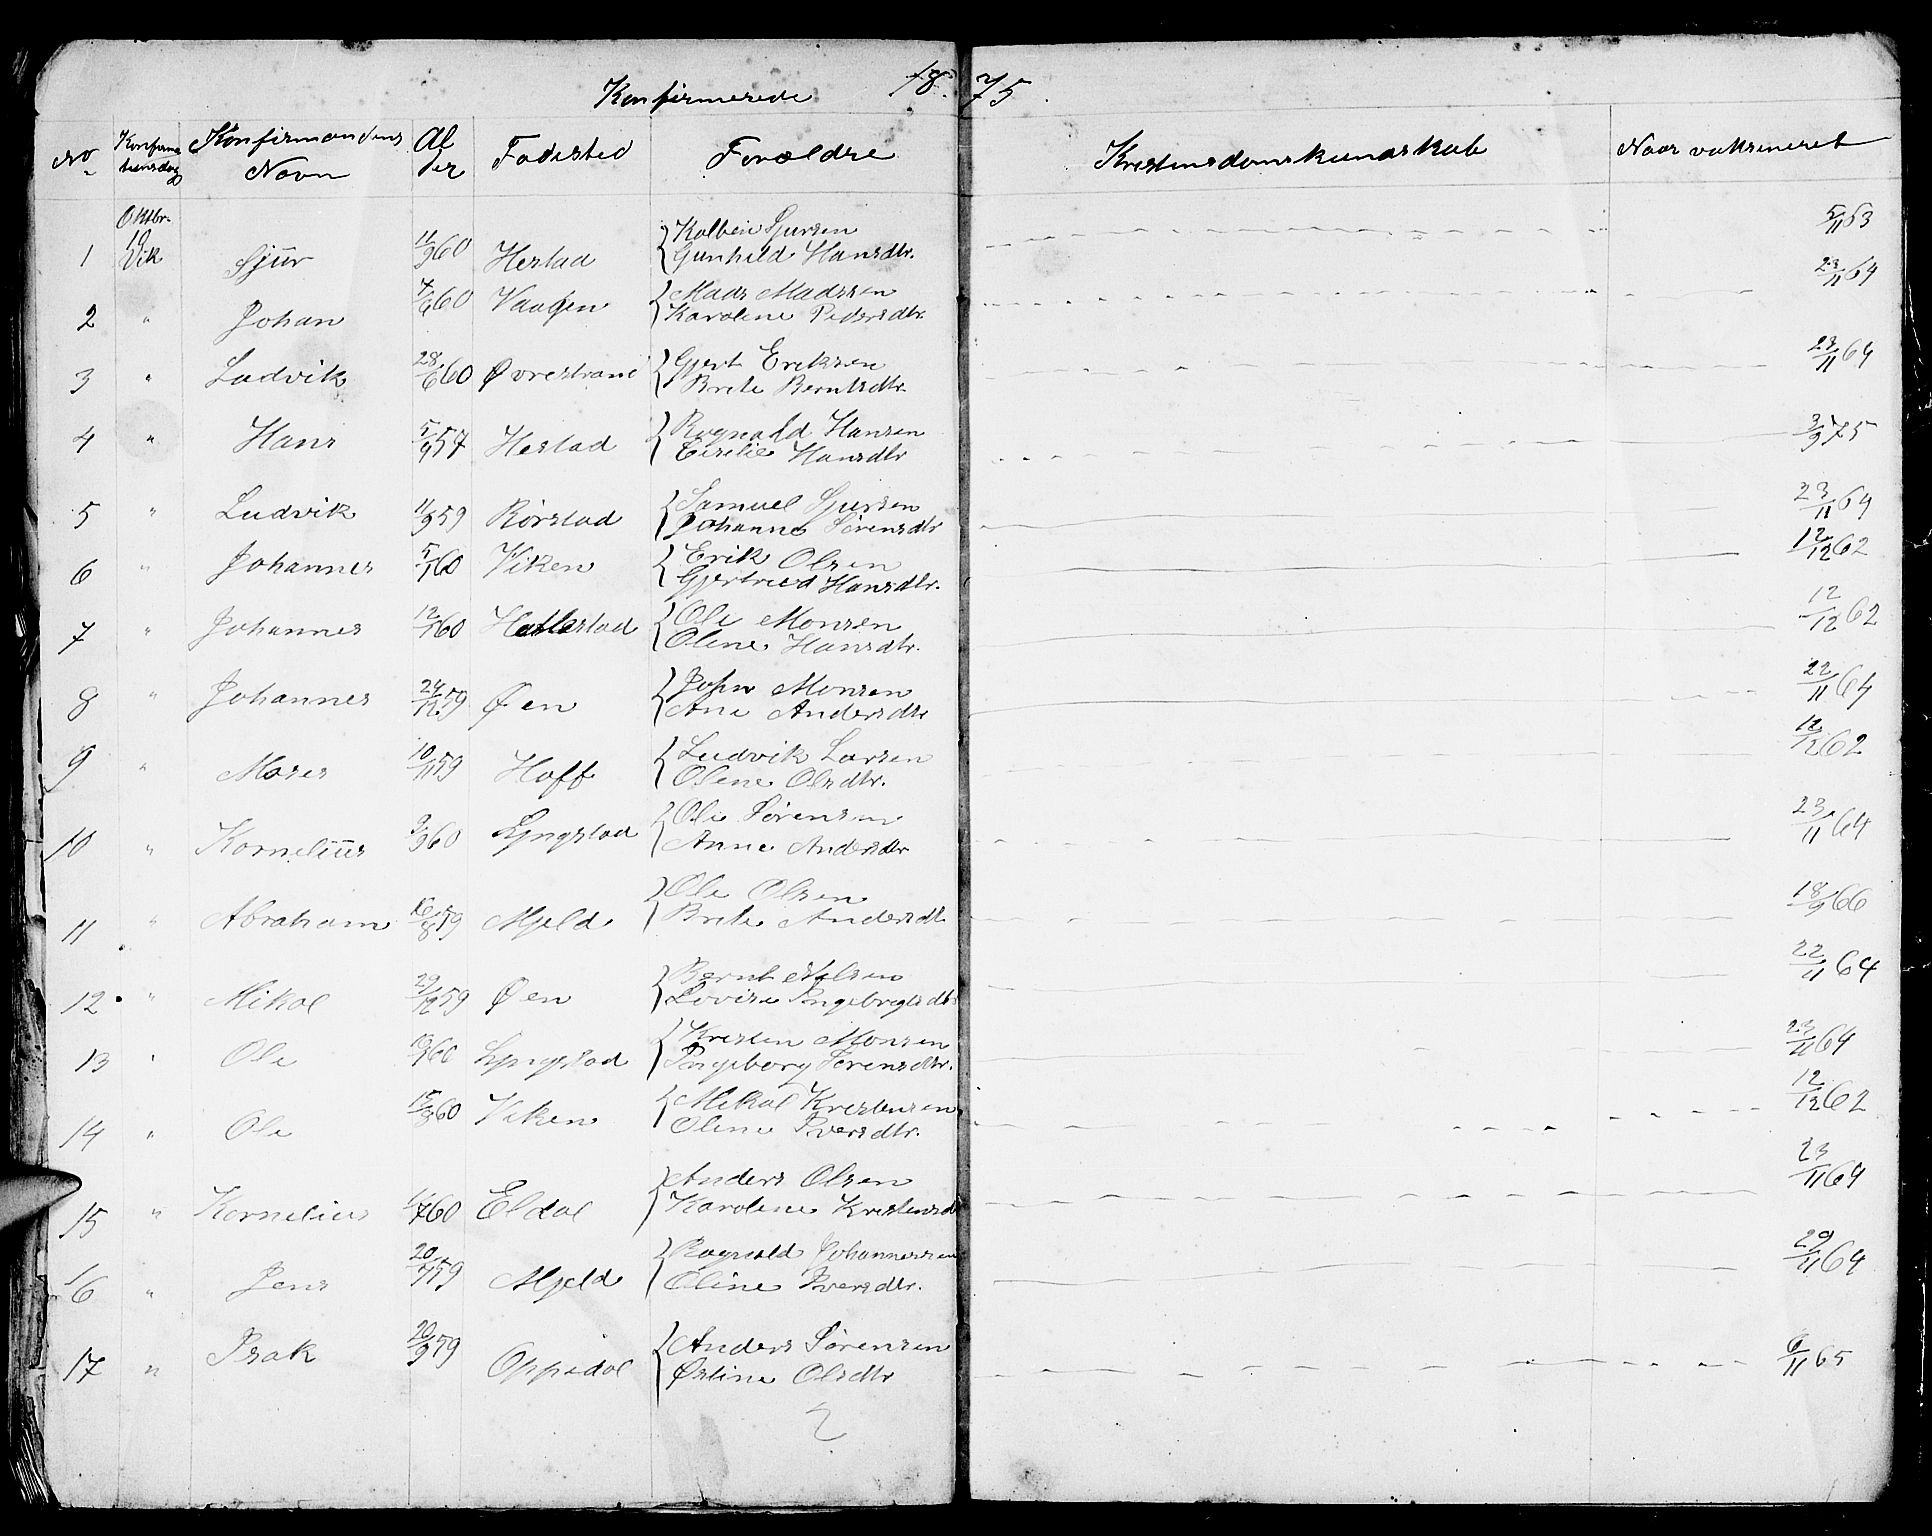 Konfirmerede 1875.
No Konfirmationsdag Konfirmandens Navn Alder Fødested Forældre Kristensdomskundskab Naar vaksineret
Oktbr. 10
1 Vik Sjür 11/9 60 Hestad Kolbein Sjursen Gunhild Hansdtr. 5/11 63
2 " Johan 60 Vaagen Mads Madssen Karoline Pedersdtr. 23/11 64
3 " Ludvik 28/6 60 Øvrestrand Gjert Eriksen Brite Berntsdtr. 23/11 64
4 " Hans 5/9 57 Hestad Rognald Hansen Hansdtr 3/9 75
5 " Ludvik 11/9 59 Rörstad Samuel Sjursen Johanne Sörensdtr 23/11 64
6 " Johannes 5/1 60 Viken Erik Olsen Gjertrud Hansdtr. 12/12 62
7 " Johannes 12/1 60 Hatlestad Ole Monsen Oline Hansdtr. 12/12 62
8 " Johannes 24/12 59 Øen John Monsen Ane Andersdtr 22/11 64
9 " Moses 10/11 59 Hoff Ludvik Larsen Oline Olsdtr. 12/12 62
10 " Kornelius 3/3 60 Lyngstad Ole Sörensen Anne Andersdtr 23/11 64
11 " Abraham 16/8 59 Mjeld Ole Olsen Brite Andersdtr 18/9 66
12 " Mikal 29/12 59 Øen Bernt Nilsen Lovise Ingebrgtsdtr 22/11 64
13 " Ole 60 Lyngstad Kristen Monsen Ingeborg Sörensdtr. 23/11 64
14 " Ole 15/8 60 Viken Mikal Kristensen Oline Iversdtr. 12/12 62
15 " Kornelius 60 Eldal Anders Olsen Karoline Kristensd 23/11 64
16 " Jens 20/7 59 Mjeld Rognald Johannessen Oline Iversdtr. 29/11 64
17 " Isak 20/9 59 Oppedal Anders Sörensen Østine Olsdtr 6/11 65